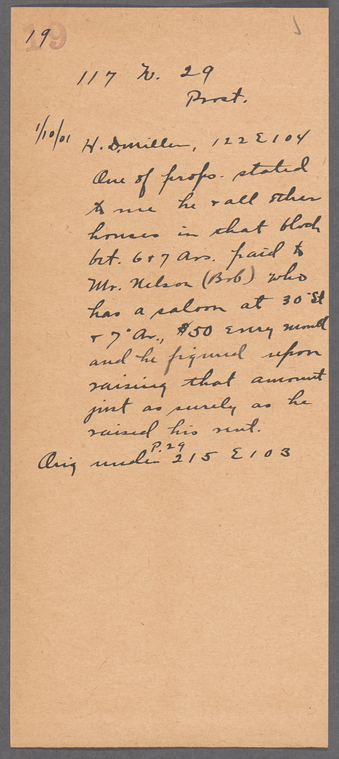 19 19
117 W. 29
Prost.
1/10/01 H. D. Miller, 122 E 104
One of props. stated
to me he & all other
houses in that block
bet. 6 & 7 Avs. paid to
Mr. Nelson (Bob) who
has a saloon at 30" St
& 7" Av., $50 every month
and he figured upon
raising that amount
just as surely as he
raised his rent.
P. 29
Orig under 215 E 103